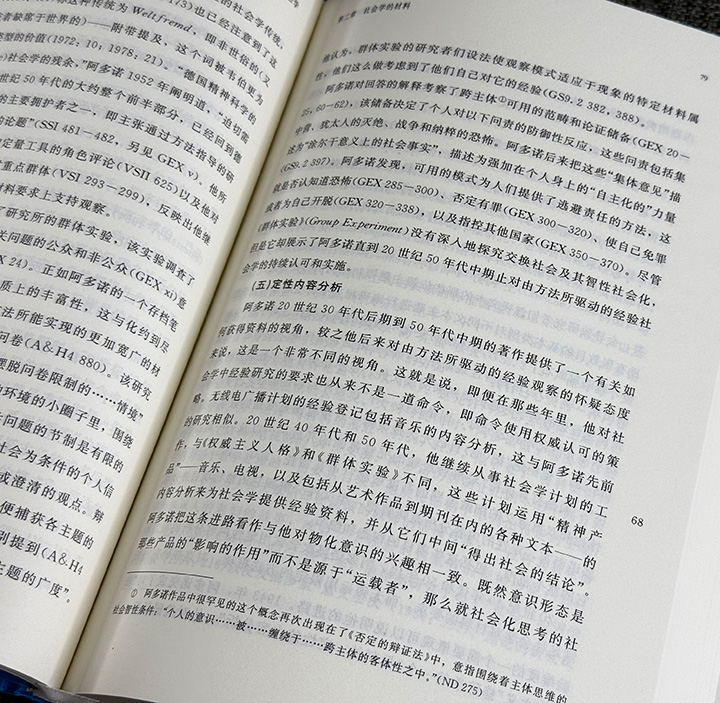 173)也已经注意到了这
种传统为Weltfremd,即非世俗的(又
者缺席于世界的)——附带提及,这个词被韦伯更为
类型的价值(1972:10;1978:21)。“德国精神科学的
)社会学的残余,”阿多诺1952年阐明道,“迫切需
世纪50年代的大约整个前半部分,已经回到德
的主要拥护者之一,即主张通过方法指导的研
的论题”(SSI 481—482,另见GEX v)。他所
定量工具的角色评论(VSII 625)以及他对
重点群体(VSI 293—299),反映出他继
材料要求上支持观察。
了研究所的群体实验,该实验调查了
关问题的公众和非公众(GEX xi)意
X 24)。正如阿多诺的一个存档笔
质上的丰富性,这与化约到尽
法所能实现的更加宽广的材
问卷(A&H4 880)。该研究
摆脱问卷限制的……情境”
中环境的小圈子里,围绕
关问题的节制是有限的
社会为条件的个人信
或澄清的观点。辩
便捕获各主题的
别提到(A&H4
主题的广度”。
第三章 社会学的材料
79
确认为,群体实验的研究者们设法使观察模式适应于现象的特定材料属
性,他们这么做考虑到了他们自己对它的经验(GS9.2 382,388)。
阿多诺对回答的解释考察了跨主体①可用的范畴和论证储备(GEX 20—
25,60—62),该储备决定了个人对以下问责的防御性反应,这些问责包括集
中营、犹太人的灭绝、战争和纳粹的恐怖。阿多诺后来把这些“集体意见”描
述为“涂尔干意义上的社会事实”,描述为强加在个人身上的“自主化的”力量
(GS9.2 397)。阿多诺发现,可用的模式为人们提供了逃避责任的方法,这
就是否认知道恐怖(GEX 285—300)、否定有罪(GEX 300—320)、使自己免罪
或者为自己开脱(GEX 320—338),以及指控其他国家(GEX 350—370)。尽管
《群体实验》(Group Experiment)没有深入地探究交换社会及其智性社会化,
但是它却展示了阿多诺直到20世纪50年代中期止对由方法所驱动的经验社
会学的持续认可和实施。
(五)定性内容分析
阿多诺20世纪30年代后期到50年代中期的著作提供了一个有关如
何获得资料的视角,较之他后来对由方法所驱动的经验观察的怀疑态度
来说,这是一个非常不同的视角。这就是说,即便在那些年里,他对社
会学中经验研究的要求也从来不是一道命令,即命令使用权威认可的策
略。无线电广播计划的经验登记包括音乐的内容分析,这与阿多诺先前
的研究相似。20世纪40年代和50年代,他继续从事社会学计划的工
作,与《权威主义人格》和《群体实验》不同,这些计划运用“精神产
品”——音乐、电视,以及包括从艺术作品到期刊在内的各种文本——的
内容分析来为社会学提供经验资料,并从它们中间“得出社会的结论”。
68
阿多诺把这条进路看作与他对物化意识的兴趣相一致。既然意识形态是
那些产品的“影响的作用”而不是源于“运载者”,那么就社会化思考的社
① 阿多诺作品中很罕见的这个概念再次出现在了《否定的辩证法》中,意指围绕着主体思维的
社会智性条件:“个人的意识……被……缠绕于……跨主体的客体性之中。”(ND 275)